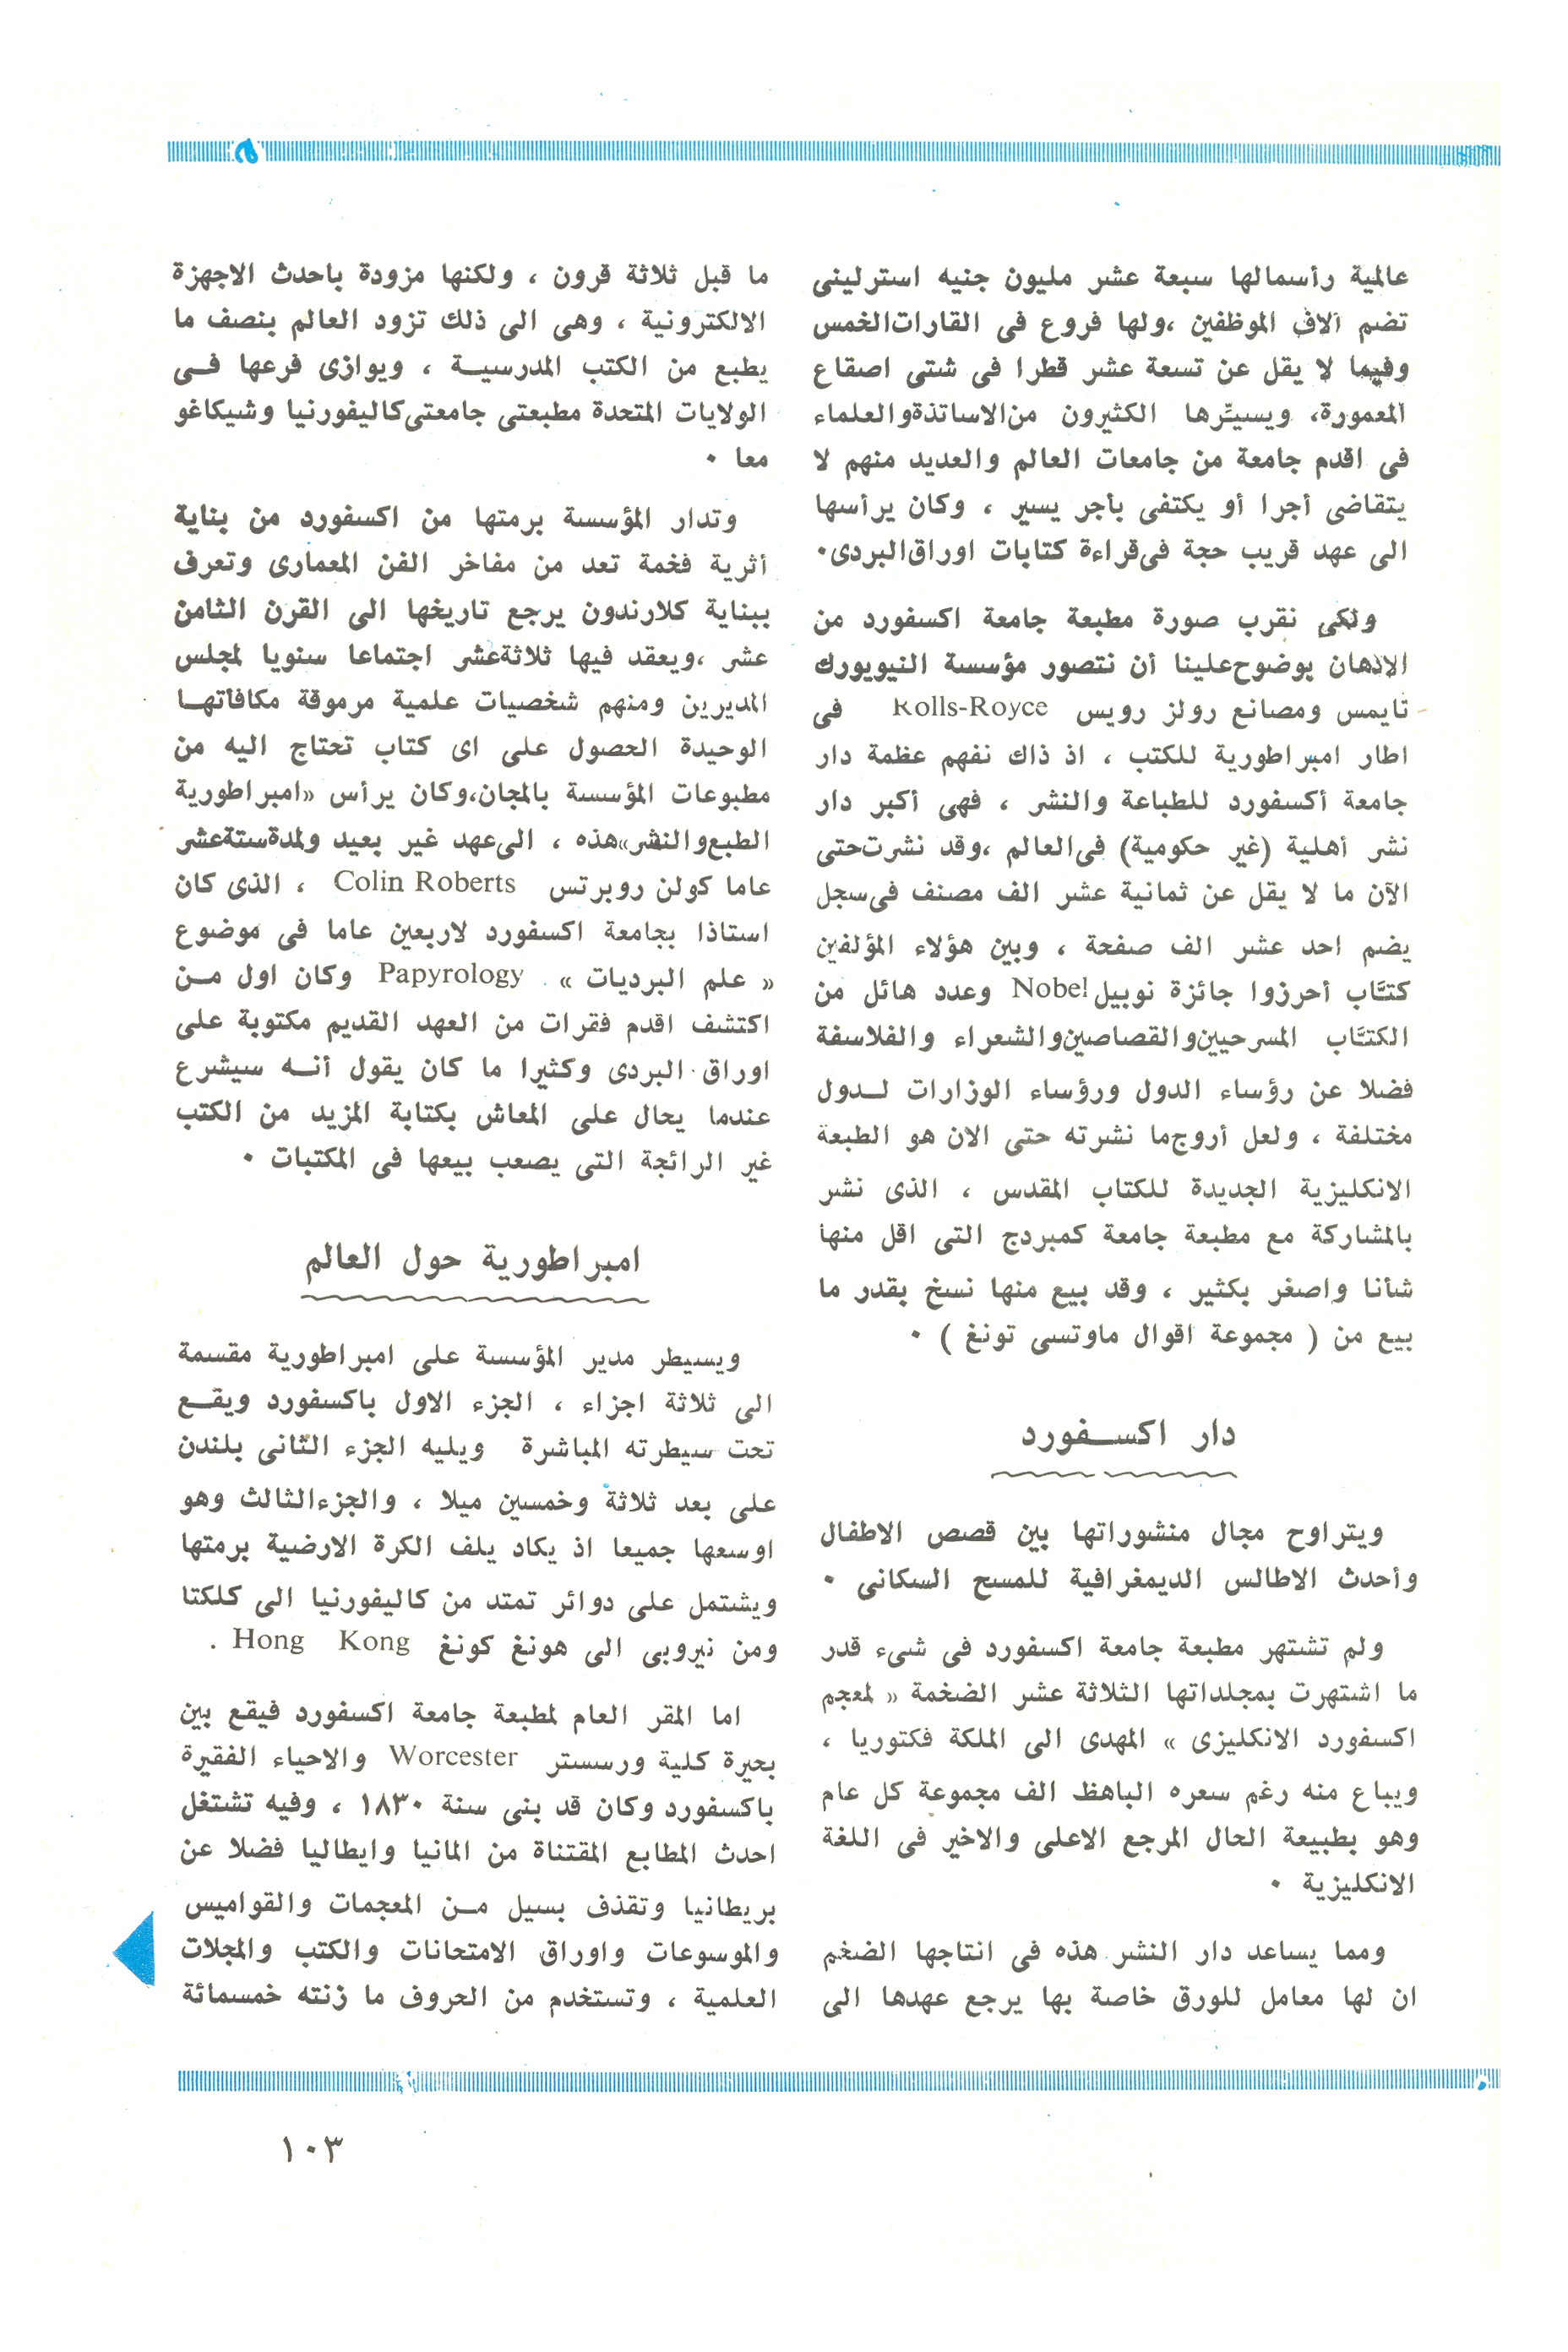 عالمية رأسمالها سبعة عشر مليون جنيه استرلينى
تضم آلاف الموظفين ،ولها فروع فى القارات الخمس
وفيما لا يقل عن تسعة عشر قطرا فى شتى اصقاع
المعمورة، ويسيّرها الكثيرون من الاساتذة والعلماء
فى اقدم جامعة من جامعات العالم والعديد منهم لا
يتقاضى أجرا أو يكتفى بأجر يسير ، وكان يرأسها
الى عهد قريب حجة فى قراءة كتابات اوراق البردى٠
ولكى نقرب صورة مطبعة جامعة اكسفورد من
الاذهان بوضوح علينا أن نتصور مؤسسة النيويورك
تايمس ومصانع رولز رويس Rolls-Royce فى
اطار امبراطورية للكتب ، اذ ذاك نفهم عظمة دار
جامعة أكسفورد للطباعة والنشر ، فهى أكبر دار
نشر أهلية (غير حكومية) فى العالم ،وقد نشرت حتى
الآن ما لا يقل عن ثمانية عشر الف مصنف فى سجل
يضم احد عشر الف صفحة ، وبين هؤلاء المؤلفين
كتّاب أحرزوا جائزة نوبيل Nobel وعدد هائل من
الكتّاب المسرحيين والقصاصين والشعراء والفلاسفة
فضلا عن رؤساء الدول ورؤساء الوزارات لـدول
مختلفة ، ولعل أروج ما نشرته حتى الان هو الطبعة
الانكليزية الجديدة للكتاب المقدس ، الذى نشر
بالمشاركة مع مطبعة جامعة كمبردج التى اقل منها
شأنا واصغر بكثير ، وقد بيع منها نسخ بقدر ما
بيع من ( مجموعة اقوال ماوتسى تونغ ) ٠
دار اكسـفورد
ويتراوح مجال منشوراتها بين قصص الاطفال
وأحدث الاطالس الديمغرافية للمسح السكانى ٠
ولم تشتهر مطبعة جامعة اكسفورد فى شىء قدر
ما اشتهرت بمجلداتها الثلاثة عشر الضخمة « لمعجم
اكسفورد الانكليزى » المهدى الى الملكة فكتوريا ،
ويباع منه رغم سعره الباهظ الف مجموعة كل عام
وهو بطبيعة الحال المرجع الاعلى والاخير فى اللغة
الانكليزية ٠
ومما يساعد دار النشر هذه فى انتاجها الضخم
ان لها معامل للورق خاصة بها يرجع عهدها الى
ما قبل ثلاثة قرون ، ولكنها مزودة باحدث الاجهزة
الالكترونية ، وهى الى ذلك تزود العالم بنصف ما
يطبع من الكتب المدرسيـة ، ويوازى فرعها فـى
الولايات المتحدة مطبعتى جامعتى كاليفورنيا وشيكاغو
معا ٠
وتدار المؤسسة برمتها من اكسفورد من بناية
أثرية فخمة تعد من مفاخر الفن المعمارى وتعرف
ببناية كلارندون يرجع تاريخها الى القرن الثامن
عشر ،ويعقد فيها ثلاثة عشر اجتماعا سنويا لمجلس
المديرين ومنهم شخصيات علمية مرموقة مكافاتهـا
الوحيدة الحصول على اى كتاب تحتاج اليه من
مطبوعات المؤسسة بالمجان،وكان يرأس «امبراطورية
الطبع والنشر»هذه ، الى عهد غير بعيد ولمدة ستة عشر
عاما كولن روبرتس Colin Roberts ، الذى كان
استاذا بجامعة اكسفورد لاربعين عاما فى موضوع
« علم البرديات » Papyrology وكان اول مـن
اكتشف اقدم فقرات من العهد القديم مكتوبة على
اوراق البردى وكثيرا ما كان يقول أنـه سيشرع
عندما يحال على المعاش بكتابة المزيد من الكتب
غير الرائجة التى يصعب بيعها فى المكتبات ٠
امبراطورية حول العالم
ويسيطر مدير المؤسسة على امبراطورية مقسمة
الى ثلاثة اجزاء ، الجزء الاول باكسفورد ويقـع
تحت سيطرته المباشرة ويليه الجزء الثانى بلندن
على بعد ثلاثة وخمسين ميلا ، والجزء الثالث وهو
اوسعها جميعا اذ يكاد يلف الكرة الارضية برمتها
ويشتمل على دوائر تمتد من كاليفورنيا الى كلكتا
ومن نيروبى الى هونغ كونغ Hong Kong .
اما المقر العام لمطبعة جامعة اكسفورد فيقع بين
بحيرة كلية ورسستر Worcester والاحياء الفقيرة
باكسفورد وكان قد بنى سنة ١٨٣٠ ، وفيه تشتغل
احدث المطابع المقتناة من المانيا وايطاليا فضلا عن
بريطانيا وتقذف بسيل مـن المعجمات والقواميس
والموسوعات واوراق الامتحانات والكتب والمجلات
العلمية ، وتستخدم من الحروف ما زنته خمسمائة
١٠٣